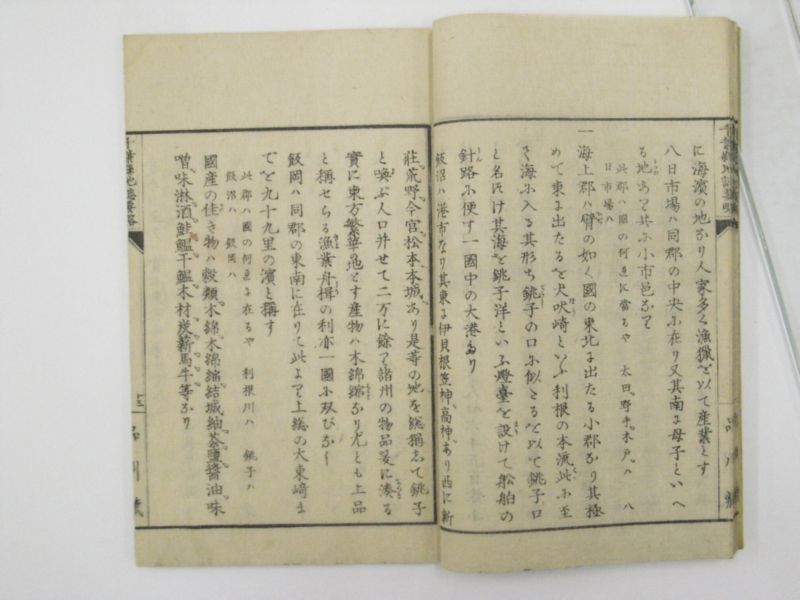 に海濱の地なり人家多く漁獵を以て産業とす
八日市場ハ同郡の中央に在り又其南に母子といへ
る地あり共に小市邑なり
此郡ハ國の何邊に當るや 太田野手木戸ハ 八
日市場ハ
一海上郡ハ臂の如く國の東北に出たる小郡なり其極
めて東に出たるを犬吠崎といふ利根の本流此に至
て海に入る其形ち銚子の口に似たるを以て銚子口
と名け其海を銚子洋といふ燈臺を設けて船舶の
針路に便す一國中の大港なり
飯沼ハ港市なり其東に伊貝根笠神高神あり西に新
莊荒野今宮松本本城あり是等の地を総稱して銚子
と喚ぶ人口并せて二万に餘り諸州の物品爰に湊る
實に東方繁華の地とす産物ハ木綿縮なり尤とも上品
と稱せらる漁業舟楫の利亦一國に双びなし
飯岡ハ同郡の東南に在りて此より上総の大東崎ま
でを九十九里の濱と稱す
此郡ハ國の何邊に在るや 利根川ハ 銚子ハ
飯沼ハ 飯岡ハ
國産の佳き物ハ穀類木綿木綿縮結城紬茶鹽醬油味
噌味淋酒鮭鰮干鰮木材炭薪馬牛等なり